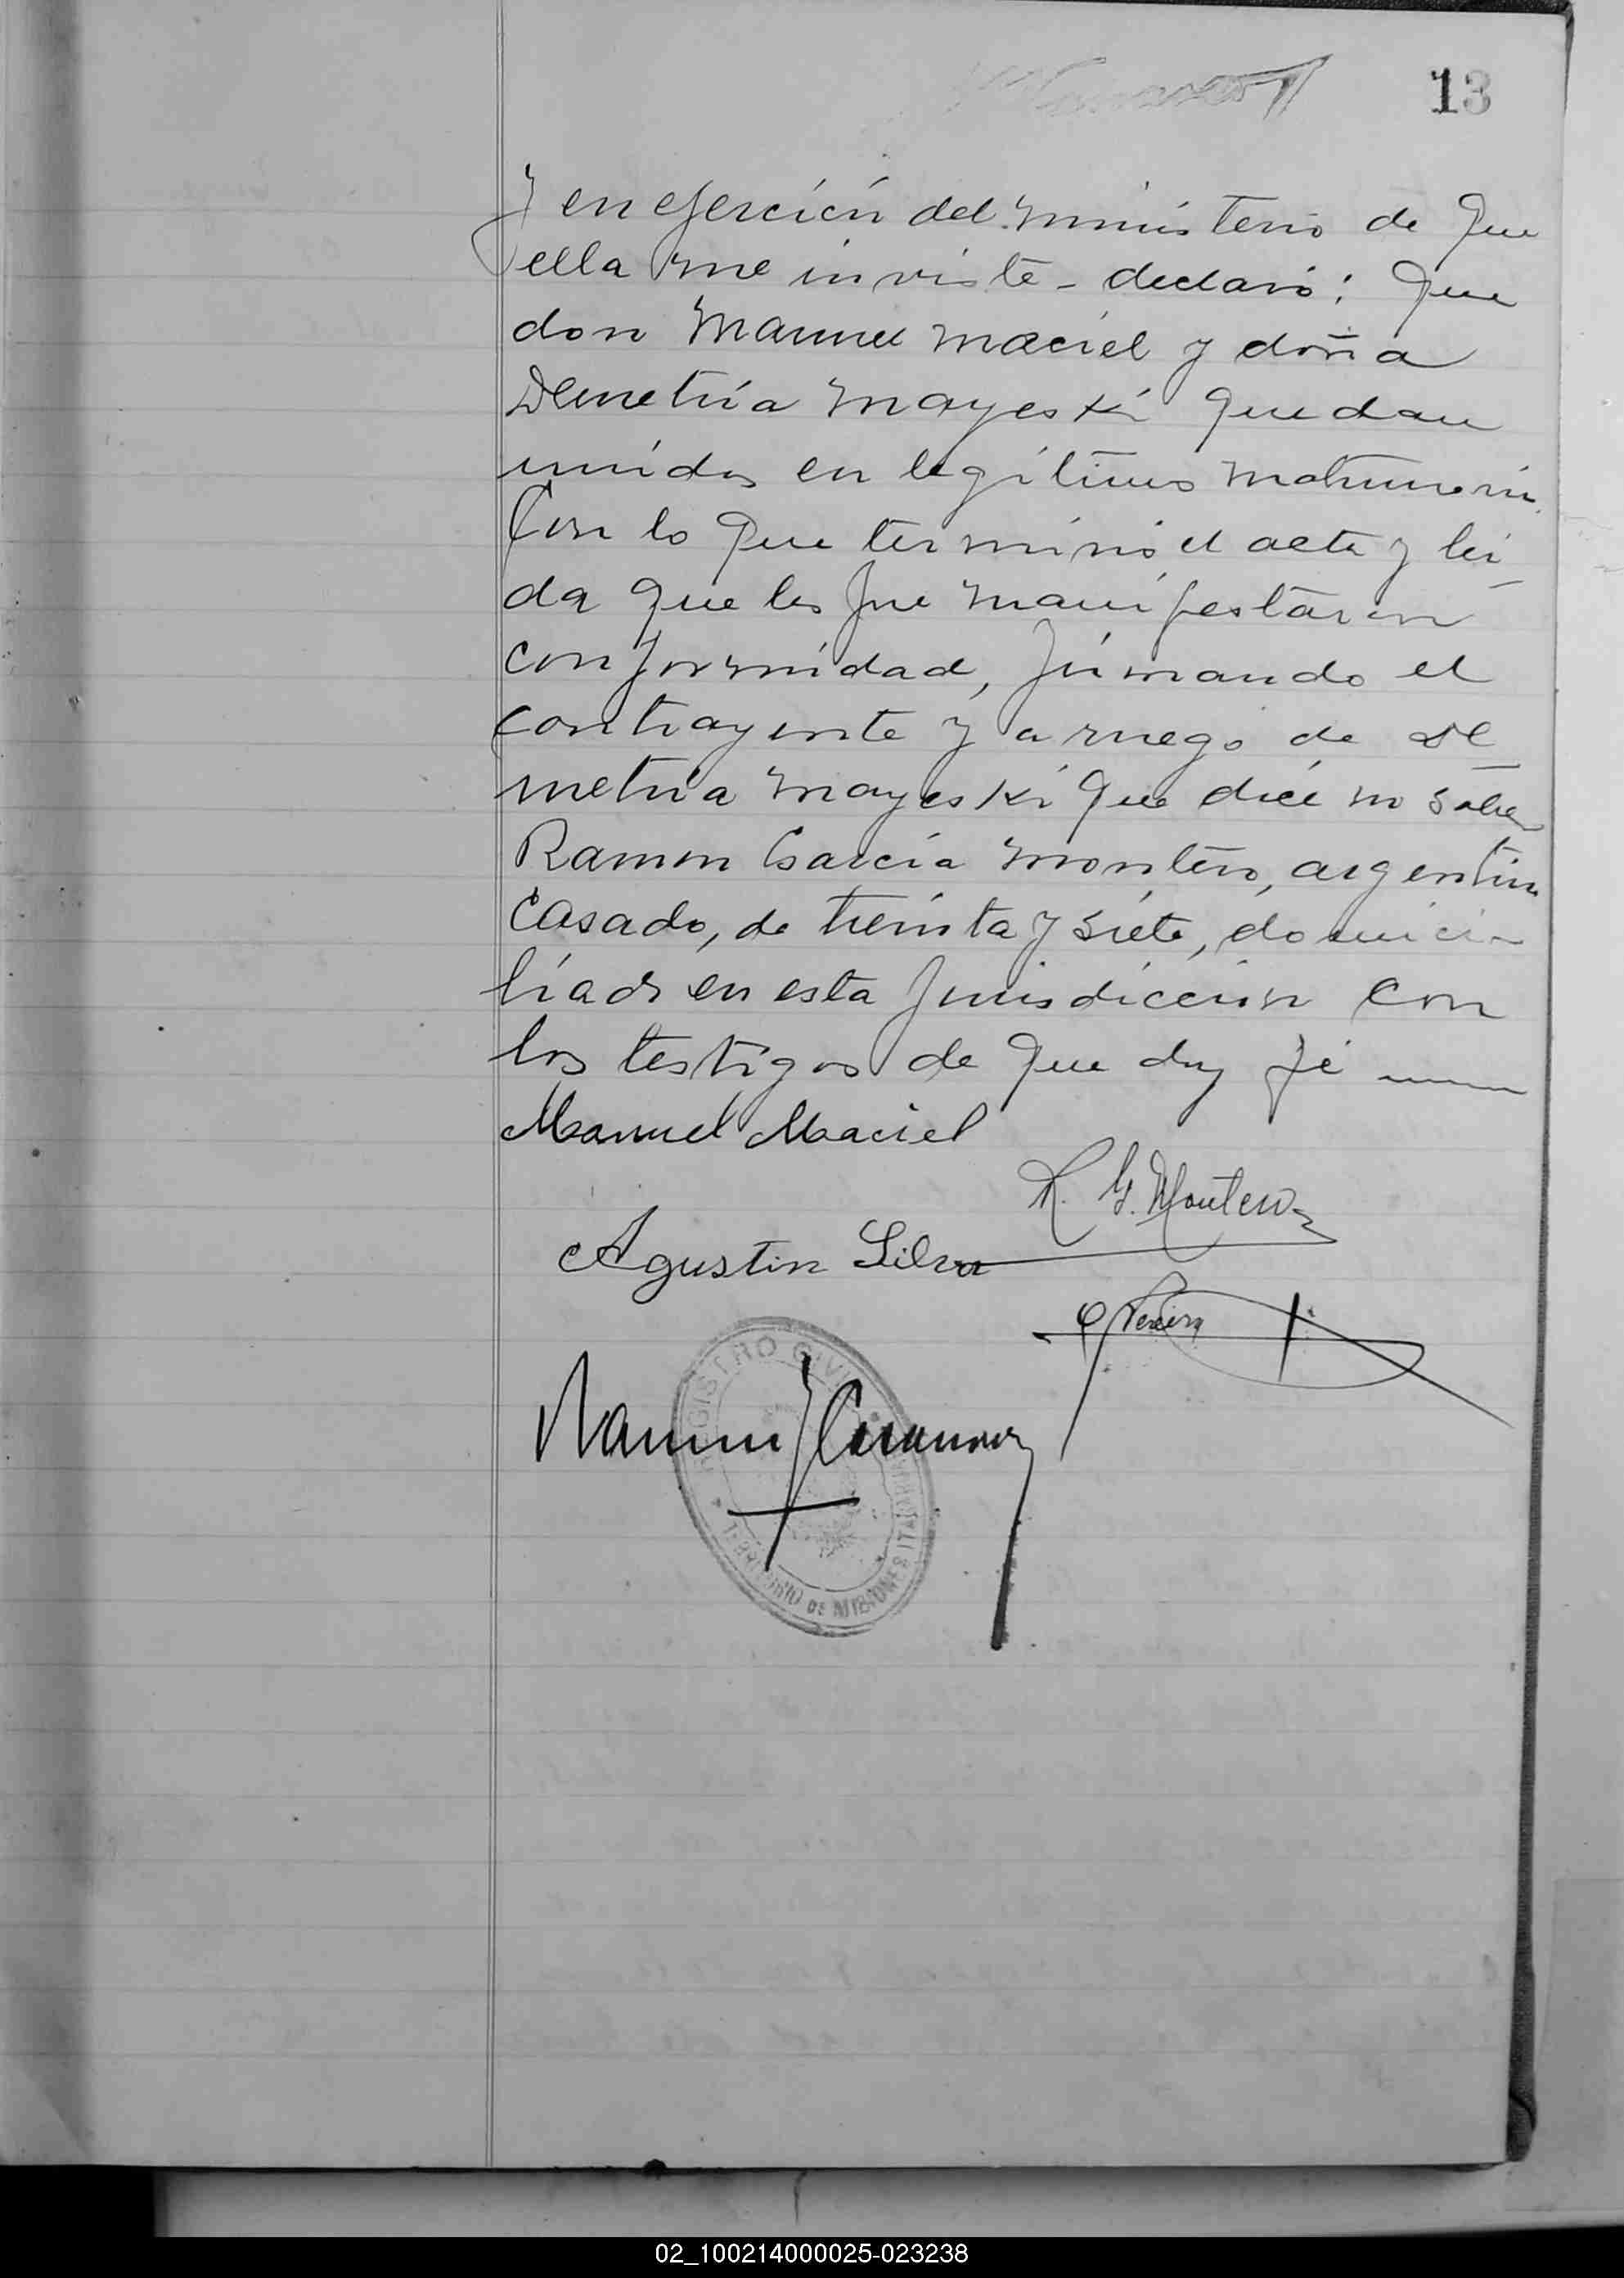 13
y en ejercicio del ministerio de que
ella me inviste - declaró: que
don Manuel Maciel y doña
Demetria Mayeski quedan
unidos en legítimo matrimonio.
Con lo que terminó el acta y leí
da que les fue manifestaron
conformidad, firmando el
contrayente y a ruego de De
metria Mayeski que dice no saber
Ramon Garcia Montero, argentino
Casado, de treinta y siete, domici
liado en esta jurisdiccion con
los testigos de que doy fé
Manuel Maciel
R. G. Montero
Agustin Silva
Pereira
Ramon
REGISTRO CIVIL
TERRITORIO DE MISIONES ITACARUARE
02_100214000025-023238